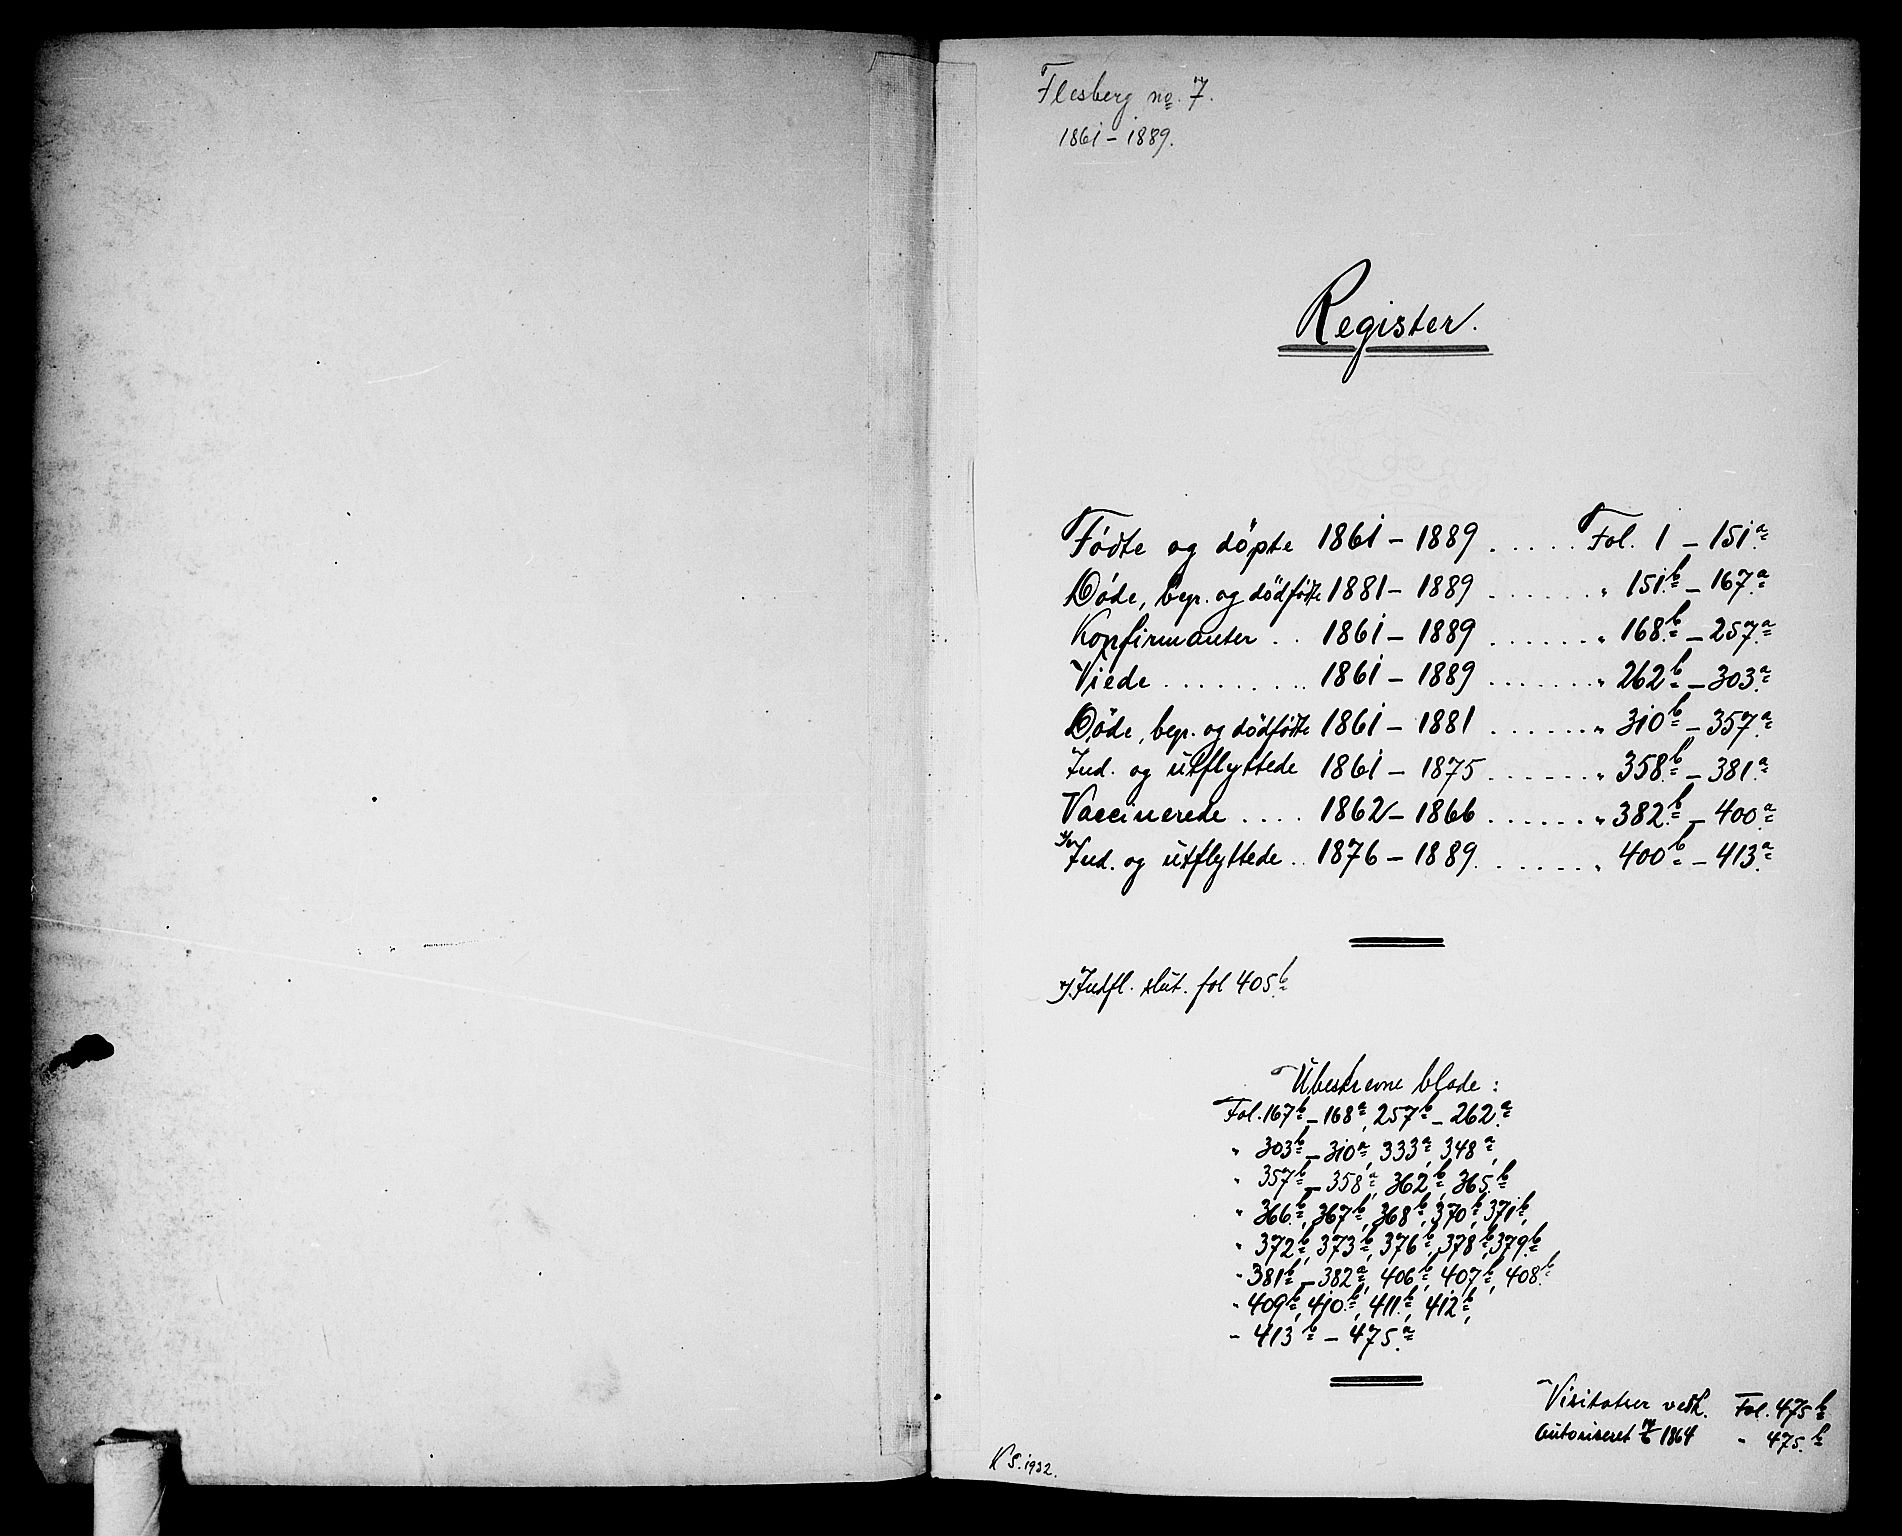 Flesberg no. 7.
1861 - 1889.
Register.
Födte og döpte 1861 - 1889 ..... Fol. 1 - 151.a
Döde, begr. og dödfödte 1881 - 1889 ....... " 151.b - 167.a
Konfirmanter .. 1861 - 1889 ....... " 168.b - 257.a
Viede ......... 1861 - 1889 ....... " 262b - 303.a
Döde, begr. og dödfödte 1861 - 1881 ....... " 310b - 357.a
Ind. og utflyttede 1861 - 1875 ....... " 358.b - 381.a
Vaccinerede .... 1862 - 1866 ....... " 382.b - 400a
Ind. og utflyttede .. 1876 - 1889 ....... " 400b - 413.a
Indfl. slut. fol 405.b
Ubeskrevne blade :
Fol. 167b - 168a, 257b - 262.a
" 303b - 310a, 333a, 348a,
" 357b - 358a, 362b, 365.b
" 366.b, 367b, 368b, 370b, 371b,
" 372b, 373b, 376b, 378b, 379.b
" 381b - 382a, 406b, 407b, 408.b
" 409b, 410.b, 411.b, 412b,
" 413b - 475.a
Visitatser vedk. Fol. 475b
Autoriseret 1864 " 475.b
K S. 1932.